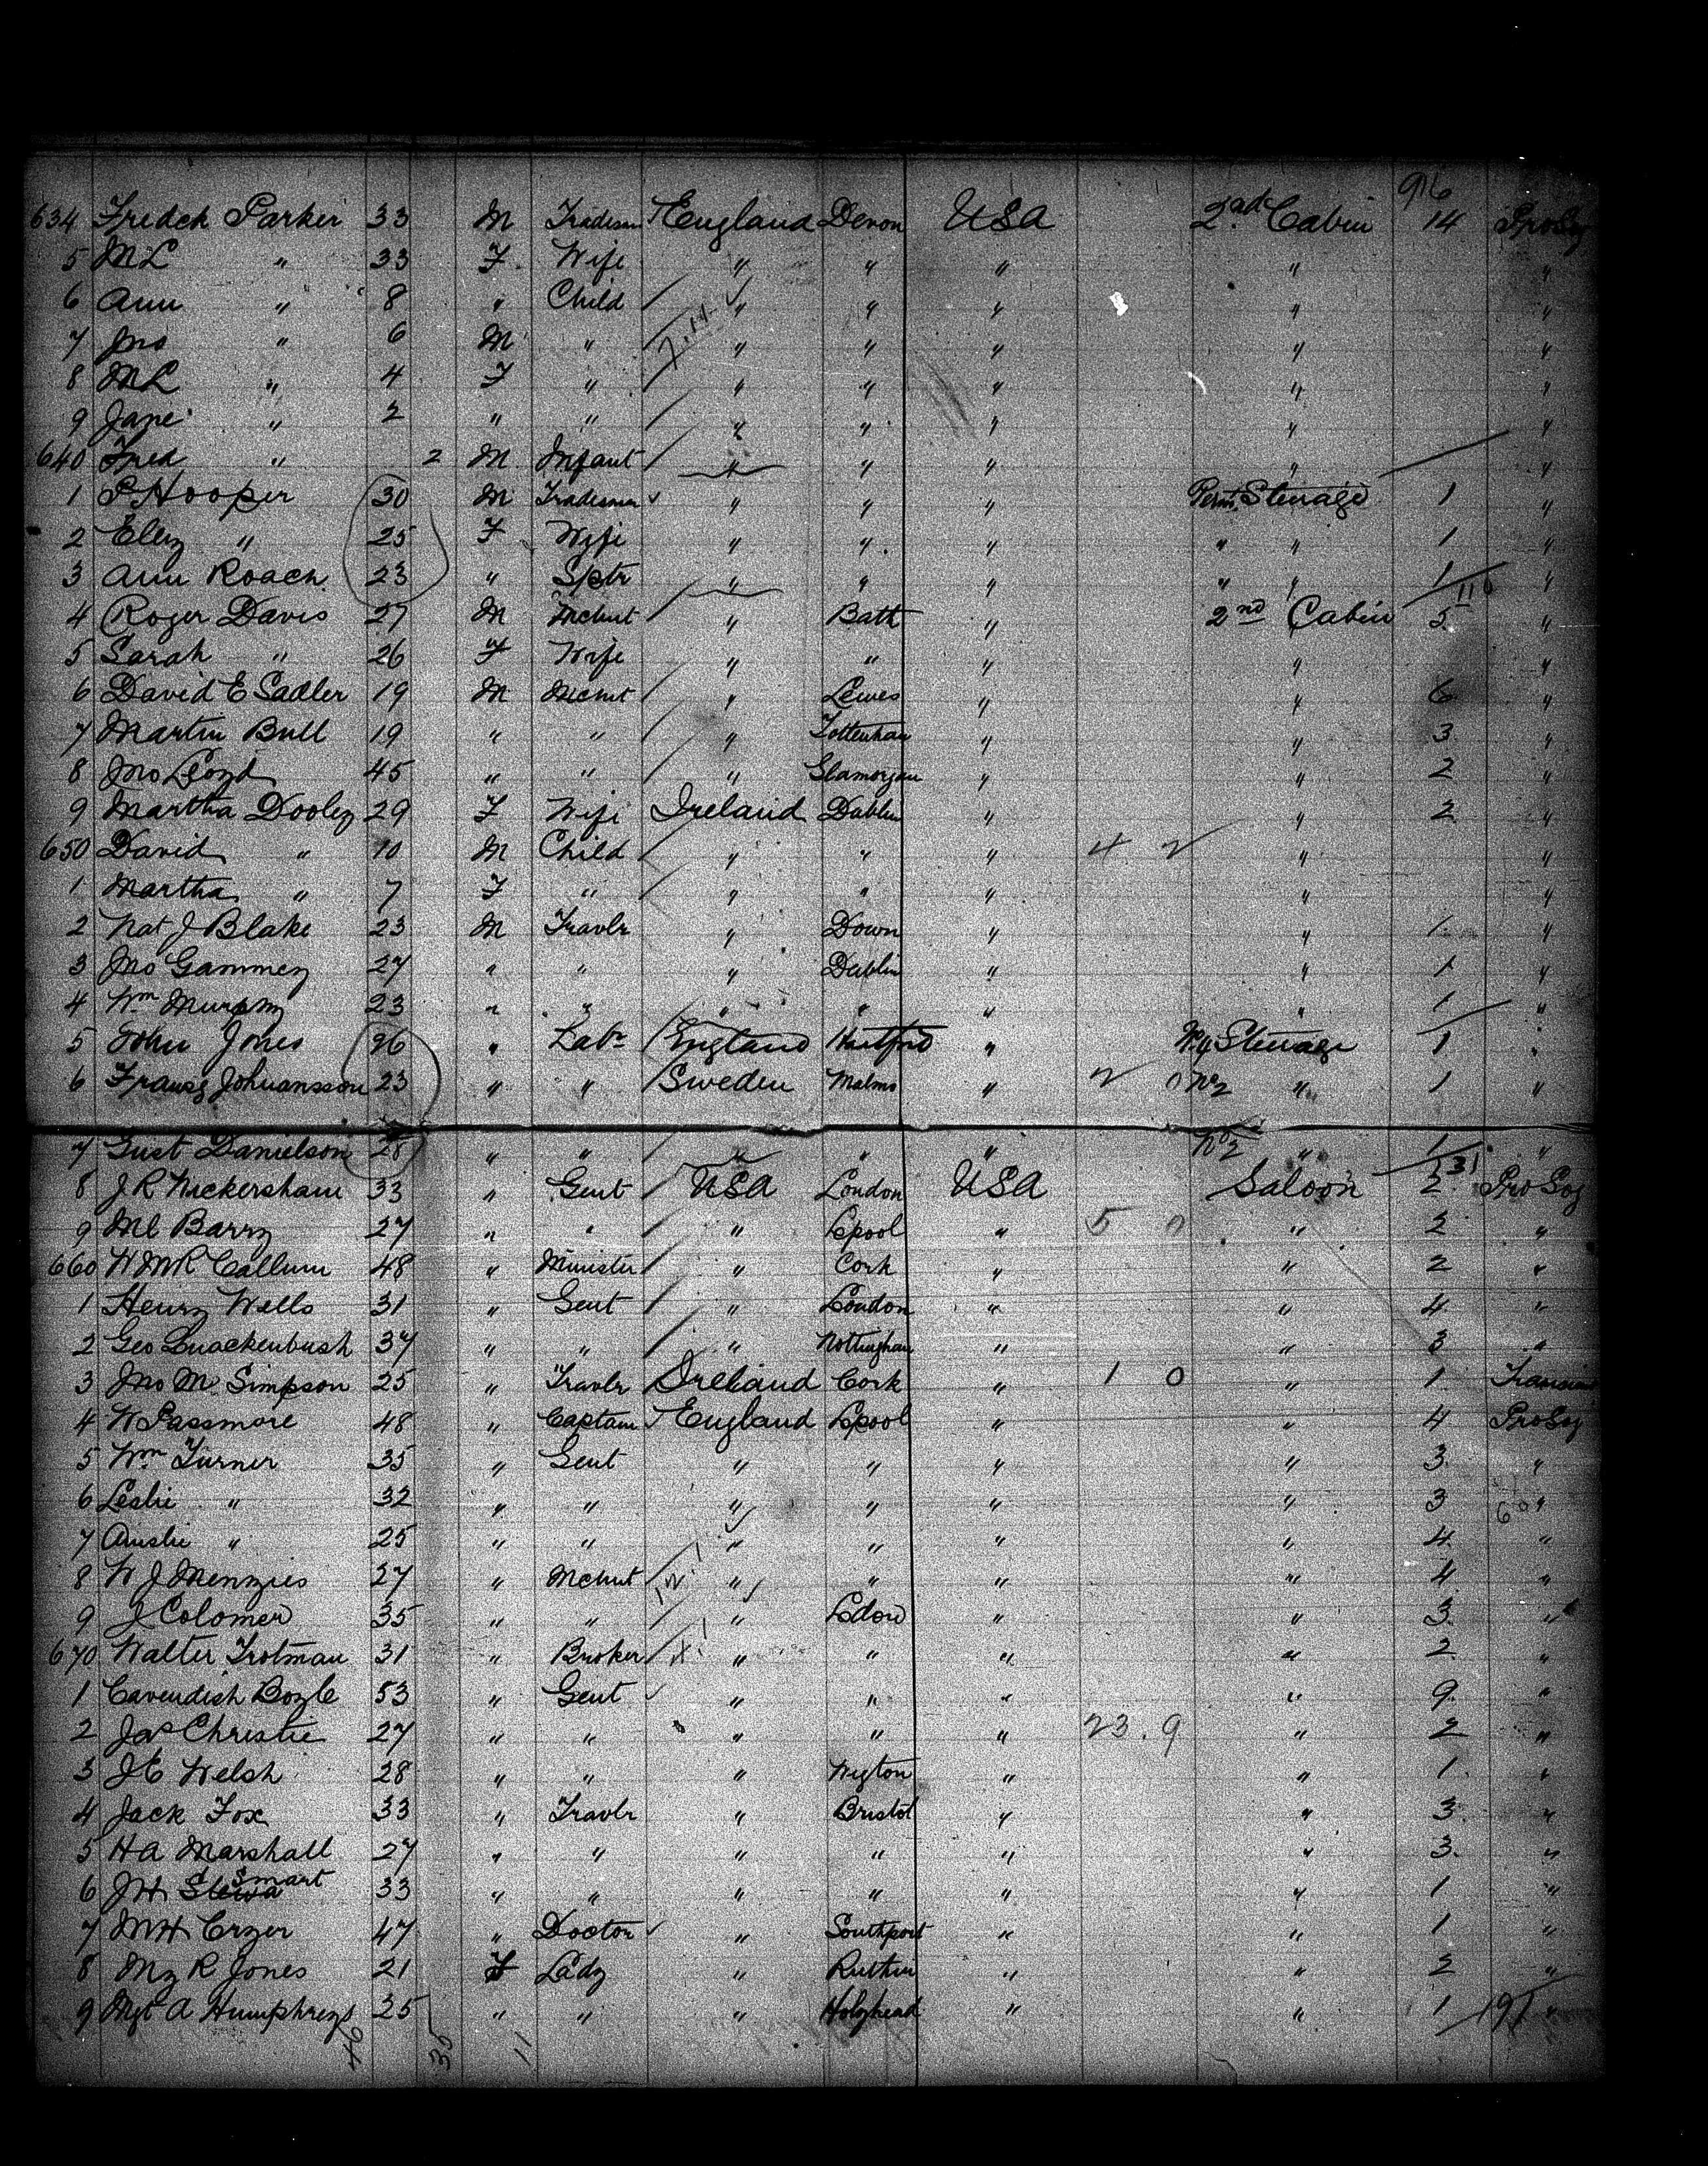 916
634 Fredck Parker 33 M Tradesm England Devon USA 2nd Cabin 14 ProSoj
5 ML " 33 F Wife " " " " "
6 Ann " 8 " Child " " " " "
7 Jno " 6 M " " " " " "
8 ML " 4 F " " " " " "
9 Jane " 2 " " " " " " "
640 Fred " 2 M Infant " " " " "
1 P Hooper 30 M Tradesman " " " Steerage 1 "
2 Eliz " 25 F Wife " " " " " 1 "
3 Ann Roach 23 " Sptr " " " " " 1 "
4 Roger Davis 27 M Mchnt " Bath " 2nd Cabin 5 "
5 Sarah " 26 F Wife " " " " "
6 David E Sadler 19 M Mchnt " Lewes " " 6 "
7 Martin Bull 19 " " " Tottenham " " 3 "
8 Jno Lloyd 45 " " " Glamorgan " " 2 "
9 Martha Dooley 29 F Wife Ireland Dublin " " 2 "
650 David " 10 M Child " " " 4 2 " "
1 Martha " 7 F " " " " " "
2 Nat J Blake 23 M Travlr " Down " " 1 "
3 Jno Gammey 27 " " " Dublin " " 1 "
4 Wm Murphy 23 " " " " " " 1 "
5 John Jones 26 " Labr England Hartford " Steerage 1 "
6 Franz Johnansson 23 " " Sweden Malmo " 2 0 No2 " 1 "
7 Gust Danielson 28 " " " " " No2 " 1 "
8 J R Nickersham 33 " Gent USA London USA Saloon 2 ProSoj
9 Ml Barry 27 " " " Lpool " 5 0 " 2 "
660 W McCallum 48 " Minister " Cork " " 2 "
1 Henry Wells 31 " Gent " London " " 4 "
2 Geo Quackenbush 37 " " " Nottingham " " 3 "
3 Jno M Simpson 25 " Travlr Ireland Cork " 1 0 " 1
4 W Passmore 48 " Captain England Lpool " " 4 ProSoj
5 Wm Turner 35 " Gent " " " " 3 "
6 Leslie " 32 " " " " " " 3 "
7 Anslie " 25 " " " " " " 4 "
8 W J Menzies 27 " Mchnt " " " " 4 "
9 J Colomer 35 " " " Ldon " " 3 "
670 Walter Trotman 31 " Broker " " " " 2 "
1 Cavendish Boyle 53 " Gent " " " " 9 "
2 Jas Christie 27 " " " " " 23.9 " 2 "
3 J E Welsh 28 " " " Wigton " " 1 "
4 Jack Fox 33 " Travlr " Bristol " " 3 "
5 HA Marshall 27 " " " " " " 3 "
6 JH Smart 33 " " " " " " 1 "
7 MH Cryer 47 " Doctor " Southport " " 1 "
8 My R Jones 21 F Lady " Ruthin " " 2 "
9 Mgt A Humphreys 25 " " " Holyhead " " 1 "
46 35 11